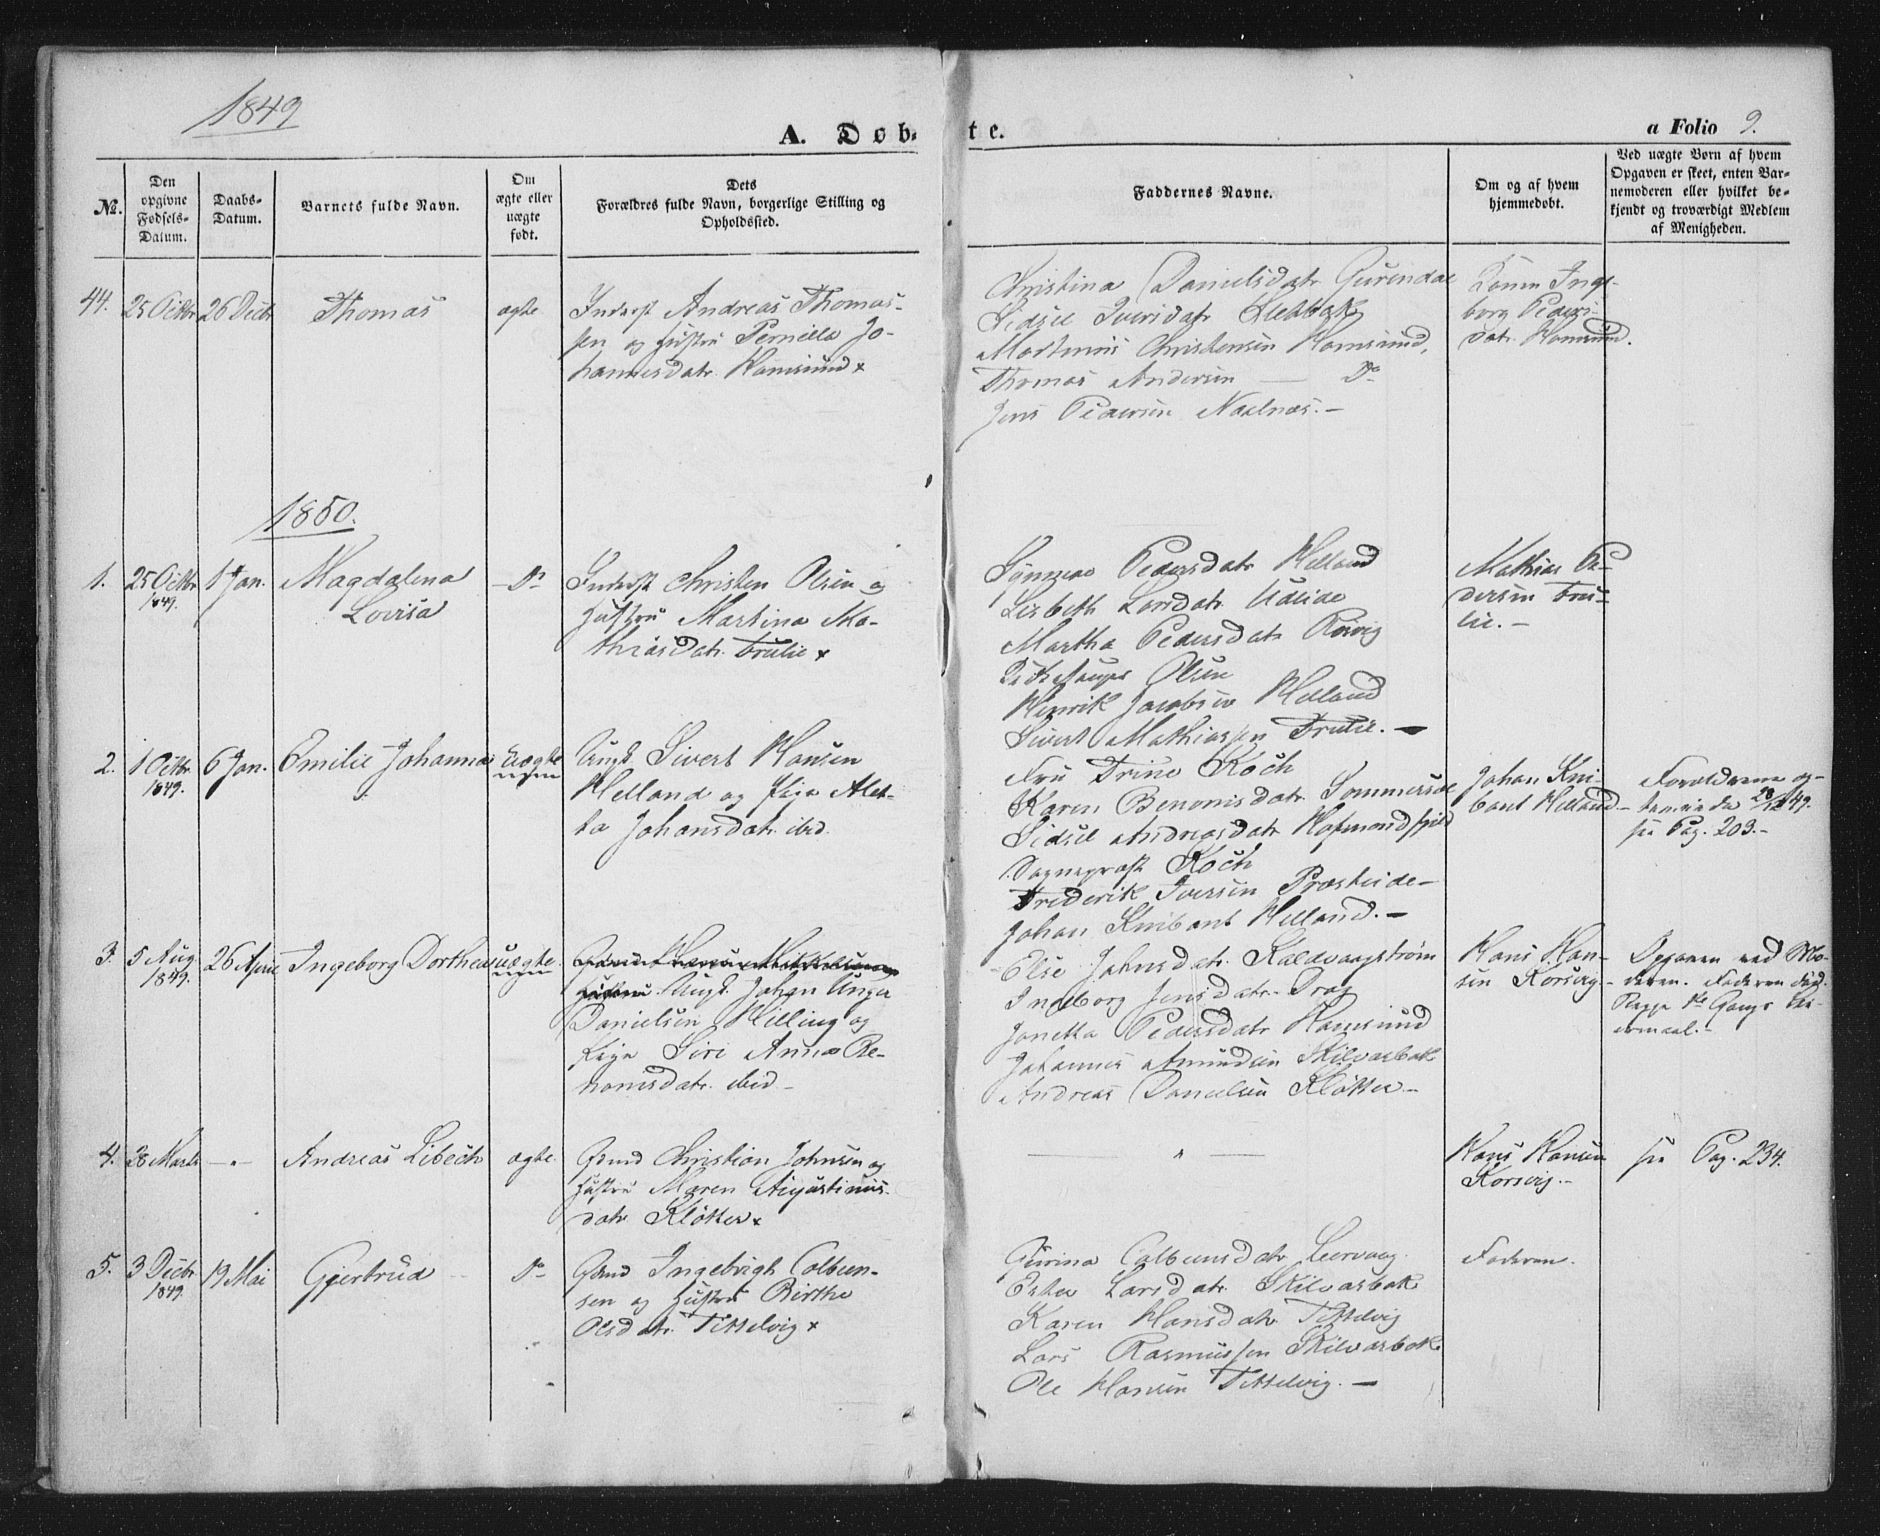 1849
A. Døb-
te.
a Folio 9.
No.
Den
opgivne
Fødsels-
Datum.
Daabs-
Datum.
Barnets fulde Navn.
Om
ægte eller
uægte
født.
Dets
Forældres fulde Navn, borgerlige Stilling og
Opholdssted.
Faddernes Navne.
Om og af hvem
hjemmedøbt.
Ved uægte Børn af hvem
Opgaven er skeet, enten Bar-
nemoderen eller hvilket be-
kjendt og troværdigt Medlem
af Menigheden.
44. 25 Octbr 26 Decbr Thomas ægte
Inderst Andreas Thomas-
sen og Hustru Pernille Jo-
hannesdatr. Hamsund x
Christina Danielsdatr
Sidsel Iversdatr
Martinus Christensen Hamsund,
Thomas Andersen — Do
Jens Pedersen Naalnæs. —
Konen Inge-
borg Peders-
datr. Hamsund.
1850.
1. 25 Octbr 1849. 1 Jan. Magdalena
Lovisa
Do
Inderst Christen Olsen og
Hustru Martina Ma-
thiasdatr. Trulie x
Pedersdatr Helland
Lisbeth Larsdatr
Martha Pedersdatr Rørvig
Olsen
Henrik Jacobsen Helland
Sivert Mathiassen Trulie. —
Mathias Pe-
dersen Tru-
lie. —
2. 1 Octbr 1849. 6 Jan. Emilie Johanna Uægte
Ungk. Sivert Hansen
Helland og Pige Alet-
ta Johansdatr. ibid.
Fru Trine Koch
Karen Benonisdatr. Sommersæl
Sidsel Andreasdatr. Hafmondfjeld
Sogneprest Koch
Frederik Iversen Præsteide —
Johan Knibant Helland. —
Johan Kni-
bant Helland —
Forældrene og-
28/12 49.
see Pag. 203. —
3. 5 Aug 1849. 26 April Ingeborg Dorthea uægte
Ungk. Johan Unger
Danielsen Hilling og
Pige Siri Anna Be-
nonisdatr. ibid —
Else Johnsdatr. Kaldvaagstrøm
Ingeborg Jensdatr. Drag
Jonetta Pedersdatr Hamsund
Johannes Amundsen Skilvasbak
Andreas Danielsen Kløkker —
Hans Han-
sen Korsvig. —
Opgaven ved Mo-
deren. Faderen
Gangs Lei-
ermaal. —
4. 28 Marts — " — Andreas Libech ægte.
Gsmd Christian Johnsen og
Hustru Maren Augustinus-
datr Kløkker x
— " —
Hans Hansen
Korsvig. —
see Pag. 234.
5. 3 Decbr 1849. 19 Mai Gjertrud Do
Gsmd Ingebrigt Colben-
sen og Hustru Birthe
Olsdatr. Tittelvig x
Gurina Colbensdatr Leervaag.
Ester Larsdatr. Skilvasbak
Karen Hansdatr Tittelvig
Lars Rasmussen Skilvasbak
Ole Hansen Tittelvig. —
Faderen.